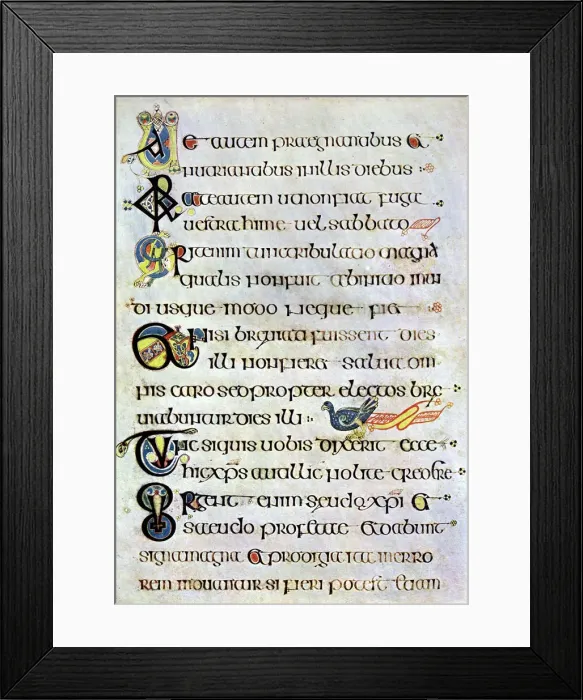 Uae autem praegnantibus et
nutriantibus in illis diebus
Orate autem ut non fiat fuga
uestra hime uel sabbato
Erit enim tunc tribulatio magna
qualis non fuit ab initio mun
di usque modo neque fia
Et nisi breuiati fuissent dies
illi non fier& salua om
nis caro sed propter electos bre
uiabuntur dies illi
Tunc si quis uobis dixerit ecce
hic xps aut illic nolite credere
Surgent enim seudoxpi et
saeudo profetae et dabunt
signa magna et prodigia ita ut in erro
rem mouantur si fieri potest etiam